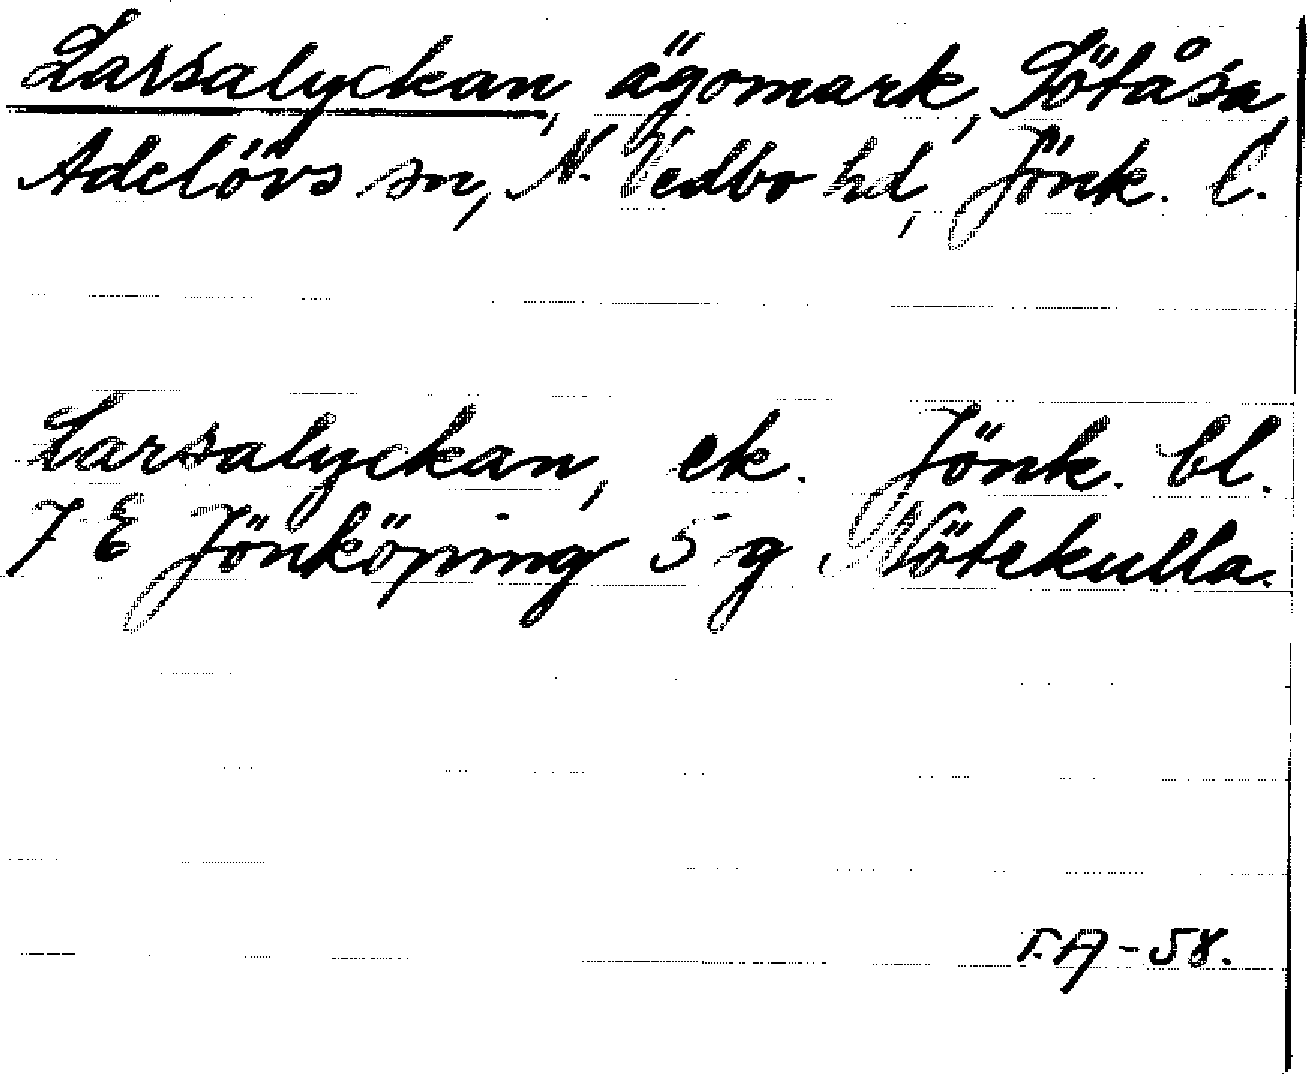 Larsalyckan, ägomark, Götåsa,
Adelövs sn, N. Vedbo hd, Jönk. l.
Larsalyckan, ek. Jönk. bl.
7 E Jönköping 5 g Nötekulla.
-58.